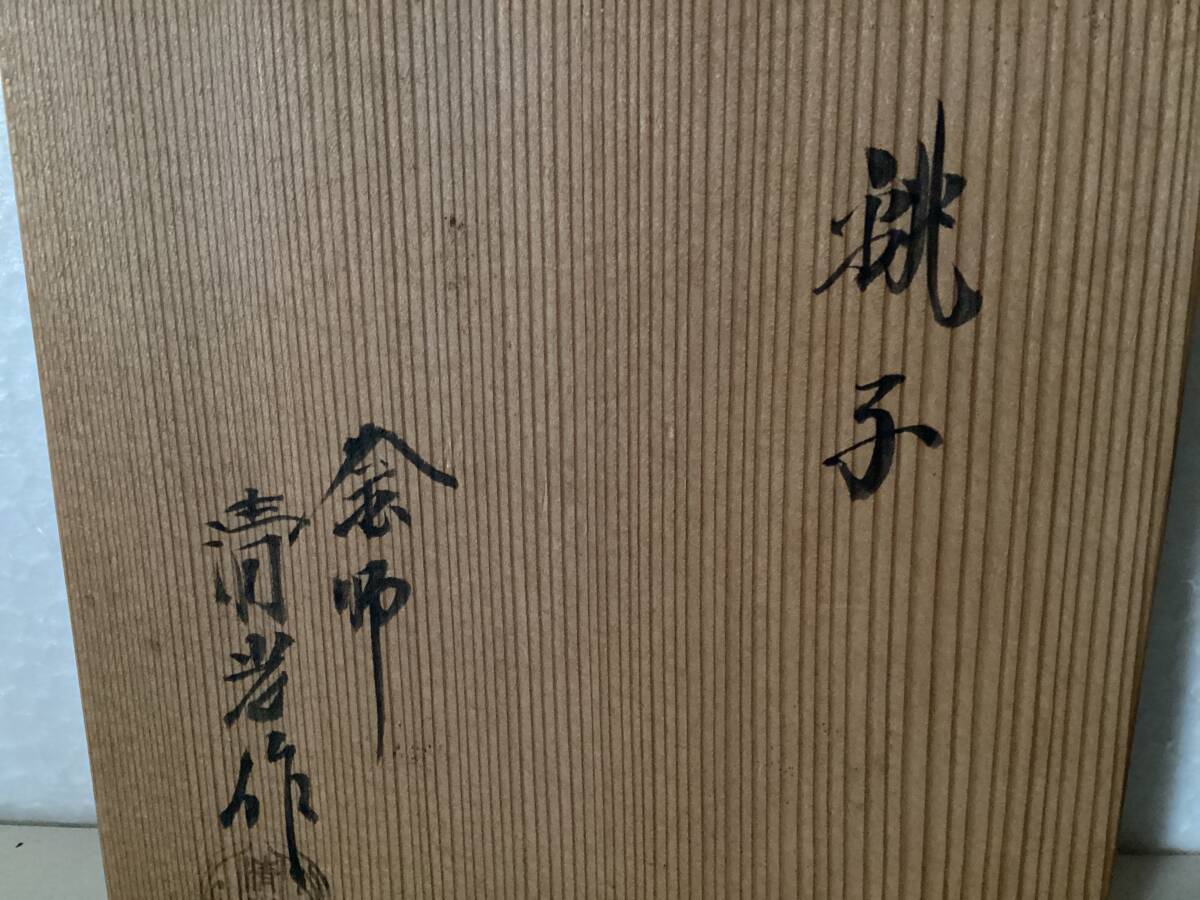 銚子
釜師
清光作